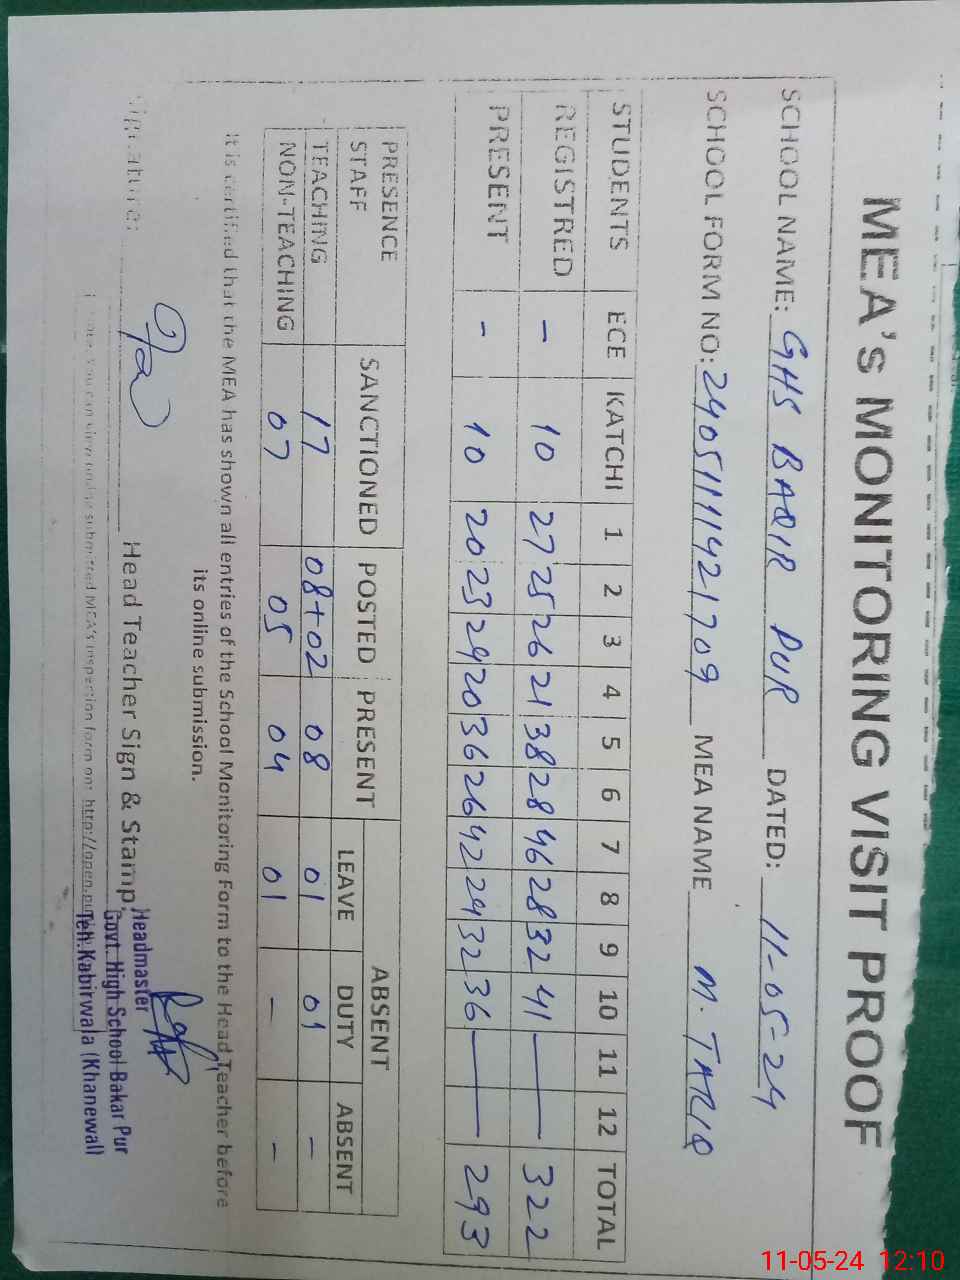 MEA's MONITORING VISIT PROOF
SCHOOL NAME: GHS BAQIR PUR DATED: 11-05-24
SCHOOL FORM NO: 24051111421709 MEA NAME M. TARIQ
STUDENTS ECE KATCHI 1 2 3 4 5 6 7 8 9 10 11 12 TOTAL
REGISTRED - 10 27 25 26 21 38 28 46 28 32 41 — 322
PRESENT - 10 20 23 29 20 36 26 42 24 32 36 — 293
PRESENCE STAFF SANCTIONED POSTED PRESENT ABSENT
LEAVE DUTY ABSENT
TEACHING 17 08+02 08 01 01 -
NON-TEACHING 07 05 04 01 - -
It is certified that the MEA has shown all entries of the School Monitoring Form to the Head Teacher before
its online submission.
Signature: Head Teacher Sign & Stamp
Headmaster
Govt. High School Bakar Pur
Teh. Kabirwala (Khanewal)
You can view online submitted MEA's inspection form on: http://open.
11-05-24 12:10